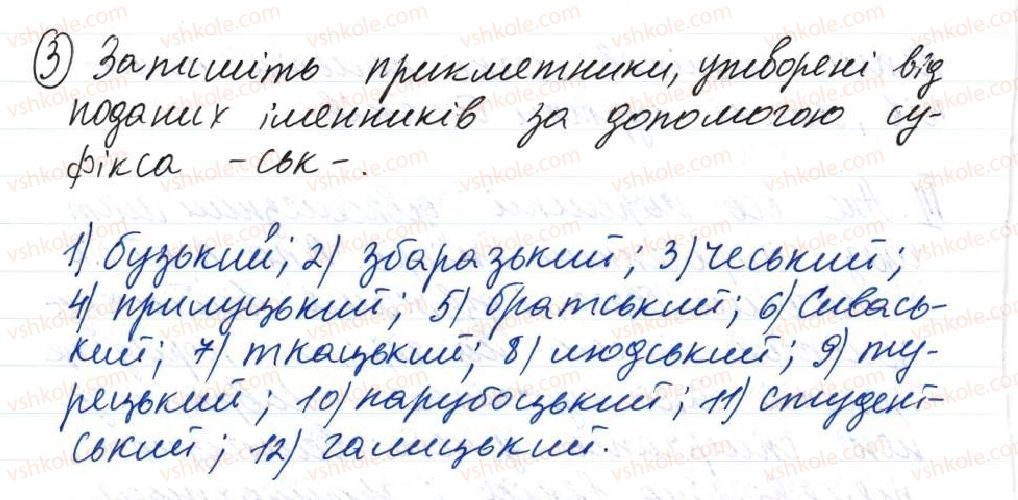 ③ Запишіть прикметники, утворені від
поданих іменників за допомогою су-
фікса -ськ-.
1) бузький; 2) збаразький; 3) чеський;
4) прилуцький; 5) братський; 6) Сивась-
кий; 7) ткацький; 8) людський; 9) ту-
рецький; 10) парубоцький; 11) студент-
ський; 12) галицький.